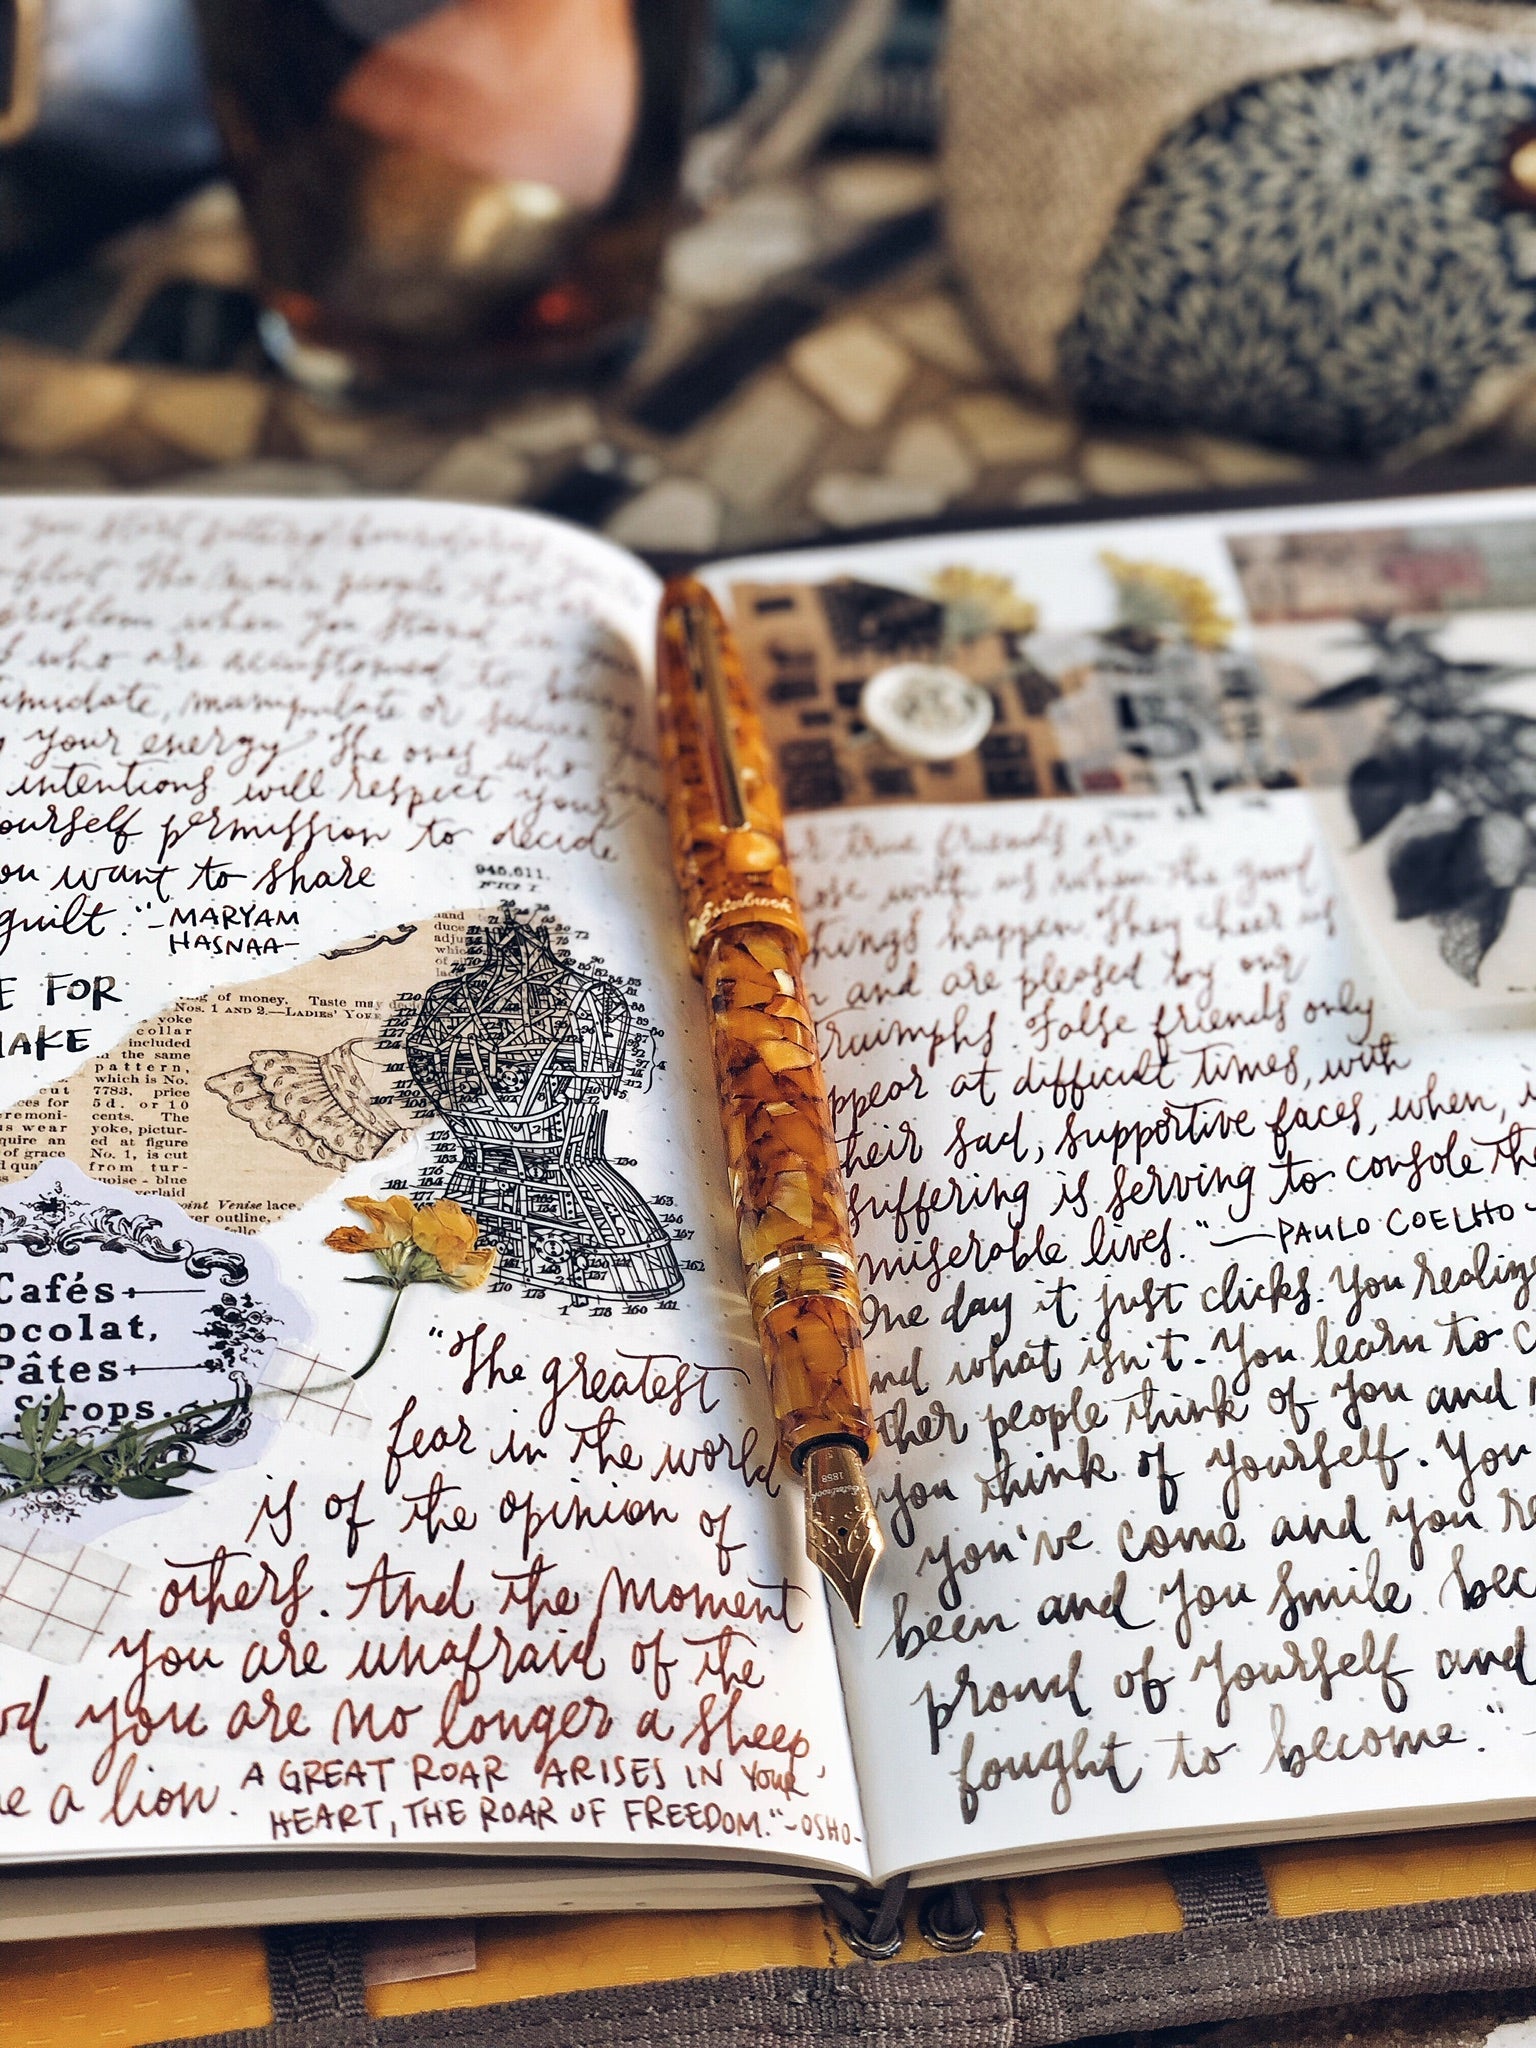 you start setting boundaries
conflict. The people that are
problem when you stand in your
who are accustomed to being
intimidate, manipulate or
your energy. The ones who
intentions will respect your
yourself permission to decide
you want to share
guilt." - MARYAM
HASNAA -
E FOR
MAKE
946,611.
and
duce
adju
which
of
lace
of money. Taste may
Nos. 1 AND 2.—LADIES' YOKE
yoke
collar
included
in the same
pattern,
which is No.
7783, price
5d. or 10
cents. The
yoke, pictur-
ed at figure
No. 1, is cut
from tur-
quoise-blue
overlaid
Point Venise lace,
outline,
Cafés
ocolat,
Pâtes
Sirops.
"The greatest
fear in the world
is of the opinion of
others. And the moment
you are unafraid of the
you are no longer a sheep,
a lion. A GREAT ROAR ARISES IN YOUR
HEART, THE ROAR OF FREEDOM." -OSHO-
Esterbrook
Esterbrook
1858
true friends are
with us when the good
things happen. They cheer us
and are pleased by our
triumphs. False friends only
appear at difficult times, with
their sad, supportive faces, when, i
suffering is serving to console the
miserable lives." — PAULO COELHO -
One day it just clicks. You realize
and what isn't. You learn to c
other people think of you and m
you think of yourself. You
you've come and you re
been and you smile bec
proud of yourself and
fought to become."